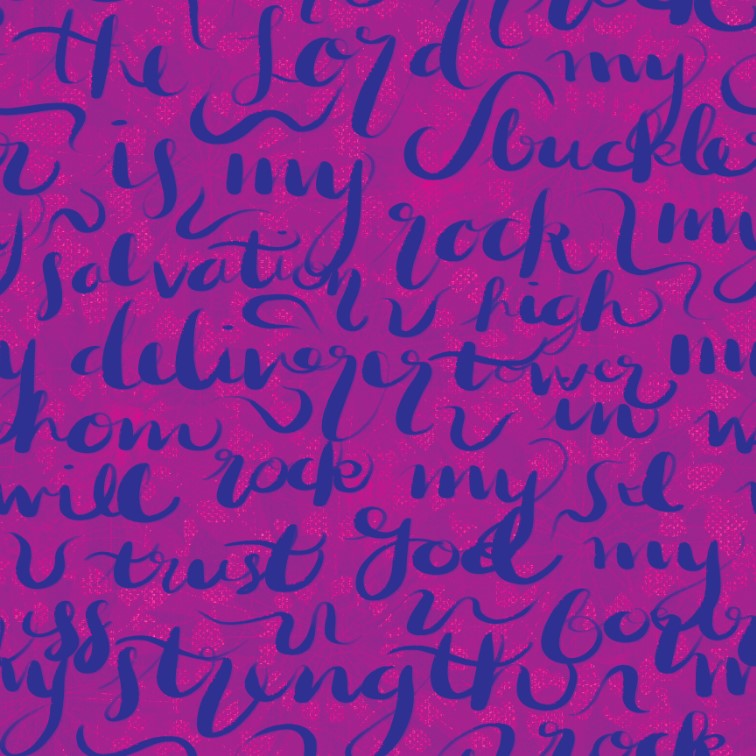 the Lord my
is my buckle
salvation rock my
high
deliverer tower my
whom in
will rock my
trust God my
strength
rock